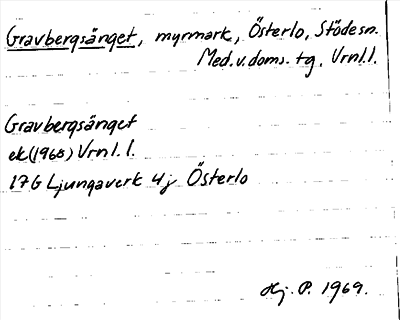 Gravbergsänget, myrmark, Österlo, Stöde sn.
Med. v. doms. tg. Vrnl. l.
Gravbergsänget
ek (1968) Vrnl. l.
17G Ljungaverk 4j Österlo
Hj. P. 1969.